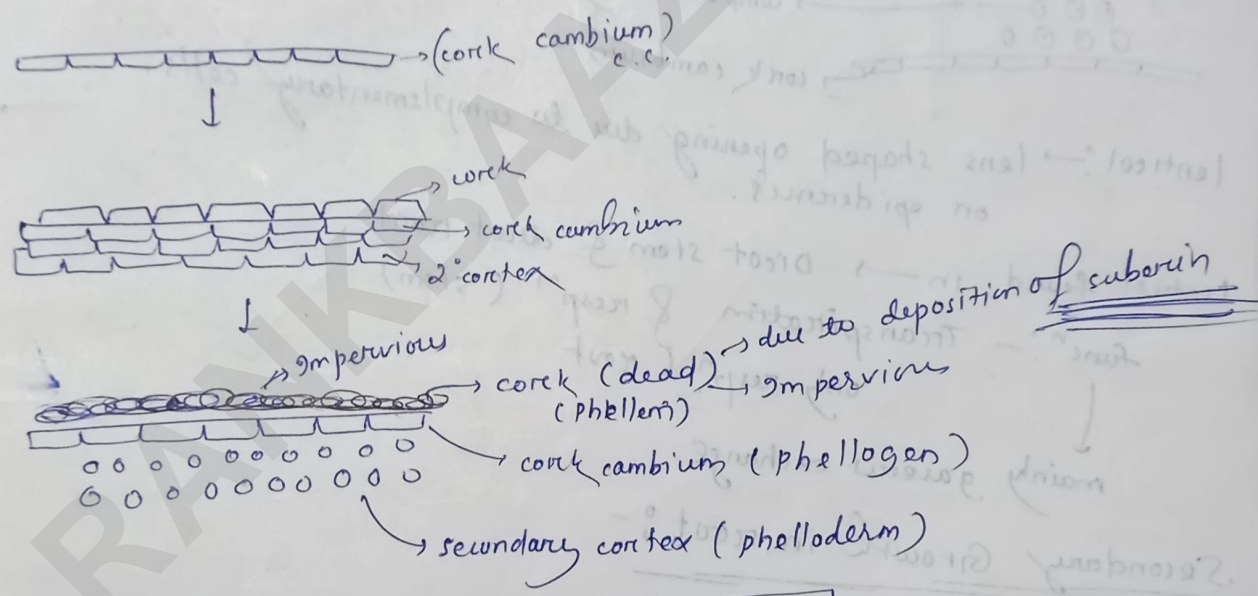 (corck cambium)
c.c.
corck
corck cambium
2° cortex
Impervious
corck (dead)
due to deposition of suberin
Impervious
(phellem)
corck cambium (phellogen)
secundary cortex (phelloderm)
RANKBAAZ